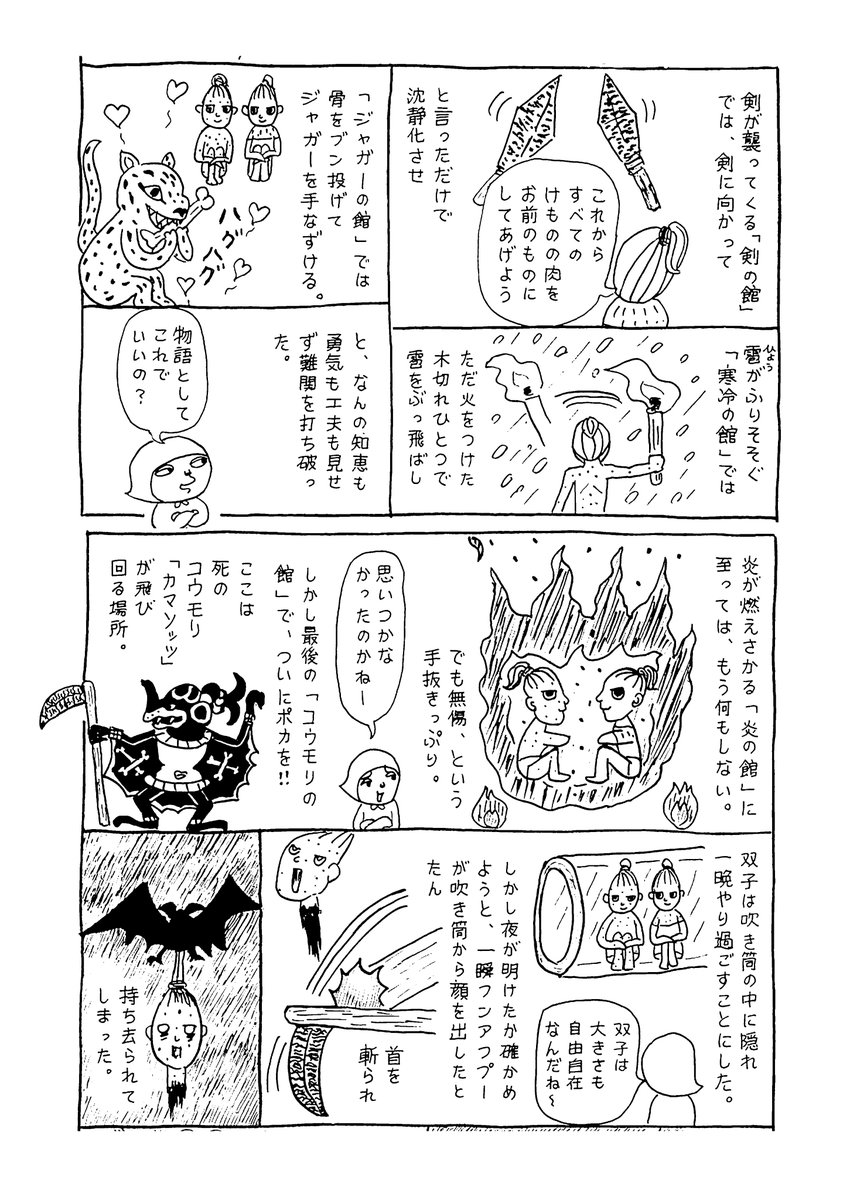 剣が襲ってくる「剣の館」
では、剣に向かって
これから
すべての
けものの肉を
お前のものに
してあげよう
と言っただけで
沈静化させ
雹がふりそそぐ
ひょう
「寒冷の館」では
ただ火をつけた
木切れひとつで
雹をぶっ飛ばし
「ジャガーの館」では
骨をブン投げて
ジャガーを手なずける。
ハグハグ
と、なんの知恵も
勇気も工夫も見せ
ず難関を打ち破っ
た。
物語として
これで
いいの？
炎が燃えさかる「炎の館」に
至っては、もう何もしない。
でも無傷、という
手抜きっぷり。
思いつかな
かったのかねー
しかし最後の「コウモリの
館」で、ついにポカを!!
ここは
死の
コウモリ
「カマソッツ」
が飛び
回る場所。
双子は吹き筒の中に隠れ
一晩やり過ごすことにした。
双子は
大きさも
自由自在
なんだね〜
しかし夜が明けたか確かめ
ようと、一瞬フンアフプー
が吹き筒から顔を出したと
たん
首を
斬られ
持ち去られて
しまった。